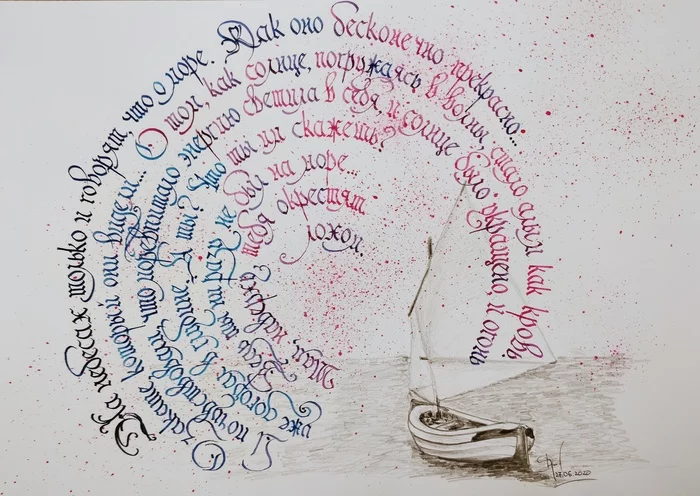 На небесах только и говорят, что о море. Как оно бесконечно прекрасно...
О закате который они видели... О том, как солнце, погружаясь в волны, стало алым как кровь.
И почувствовали, что море впитало энергию светила в себя, и солнце было укрощено, и огонь
уже догорал в глубине. А ты? Что ты им скажешь?
Ведь ты ни разу не был на море...
Там, наверху, тебя окрестят
лохом.
27.06.2020